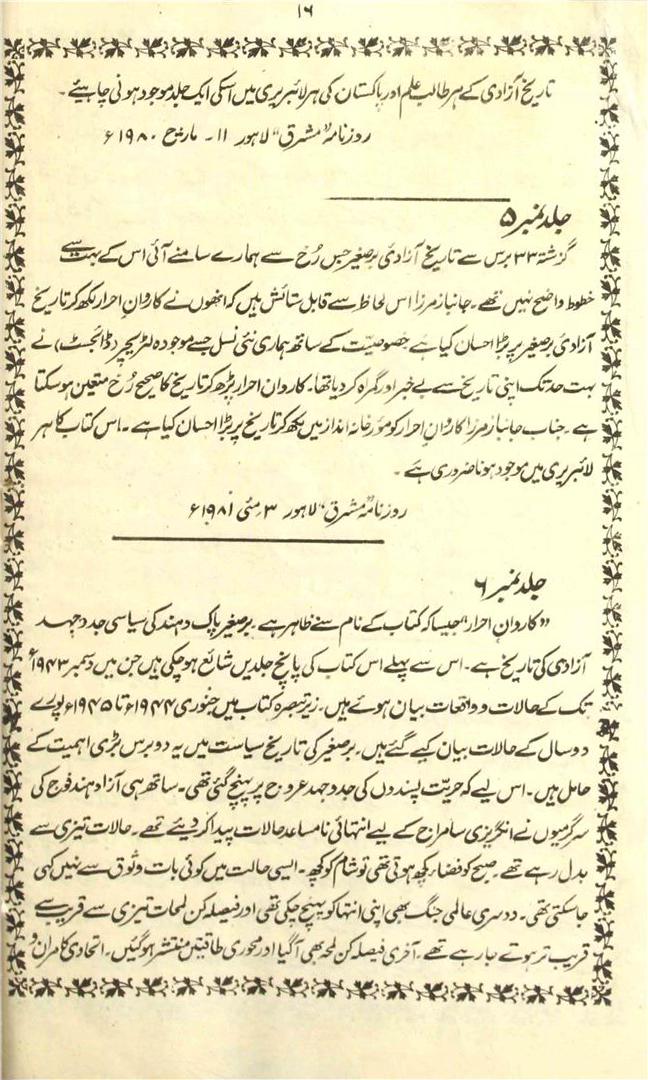 ۱۶
تاریخ آزادی کے ہر طالب علم اور پاکستان کی ہر لائبریری میں اسکی ایک جلد موجود ہونی چاہیئے۔
روزنامہ "مشرق" لاہور ۱۱۔ مارچ ۱۹۸۰ء
جلد نمبر ۵
گزشتہ ۳۳ برس سے تاریخ آزادیٔ برصغیر جس رُخ سے ہمارے سامنے آئی اس کے بہت سے
خطوط واضح نہیں تھے۔ جانباز مرزا اس لحاظ سے قابل ستائش ہیں کہ انھوں نے کاروانِ احرار لکھ کر تاریخ
آزادیٔ برصغیر پر بڑا احسان کیا ہے خصوصیّت کے ساتھ ہماری نئی نسل جسے موجودہ لٹریچر (ڈائجسٹ) نے
بہت حد تک اپنی تاریخ سے بے خبر اور گمراہ کر دیا تھا۔ کاروان احرار پڑھ کر تاریخ کا صحیح رُخ متعین ہو سکتا
ہے۔ جناب جانباز مرزا کاروانِ احرار کو مؤرخانہ انداز میں لکھ کر تاریخ پر بڑا احسان کیا ہے۔ اس کتاب کا ہر
لائبریری میں موجود ہونا ضروری ہے۔
روزنامہ "مشرق" لاہور ۳ مئی ۱۹۸۱ء
جلد نمبر ۶
"کاروانِ احرار" جیسا کہ کتاب کے نام سے ظاہر ہے برصغیر پاک و ہند کی سیاسی جدوجہد
آزادی کی تاریخ ہے۔ اس سے پہلے اس کتاب کی پانچ جلدیں شائع ہو چکی ہیں جن میں دسمبر ۱۹۴۳ء
تک کے حالات و واقعات بیان ہوئے ہیں۔ زیر تبصرہ کتاب میں جنوری ۱۹۴۴ء تا ۱۹۴۵ء پورے
دو سال کے حالات بیان کیے گئے ہیں۔ برصغیر کی تاریخ سیاست میں یہ دو برس بڑی اہمیت کے
حامل ہیں۔ اس لیے کہ حریت پسندوں کی جدوجہد عروج پر پہنچ گئی تھی۔ ساتھ ہی آزاد ہند فوج کی
سرگرمیوں نے انگریزی سامراج کے لیے انتہائی نامساعد حالات پیدا کر دیئے تھے۔ حالات تیزی سے
بدل رہے تھے۔ صبح کو فضاء کچھ ہوتی تھی تو شام کو کچھ۔ ایسی حالت میں کوئی بات وثوق سے نہیں کہی
جا سکتی تھی۔ دوسری عالمی جنگ بھی اپنی انتہا کو پہنچ چکی تھی اور فیصلہ کن لمحات تیزی سے قریب سے
قریب تر ہوتے جا رہے تھے۔ آخری فیصلہ کن لمحہ بھی آ گیا اور محوری طاقتیں منتشر ہو گئیں۔ اتحادی کامران و